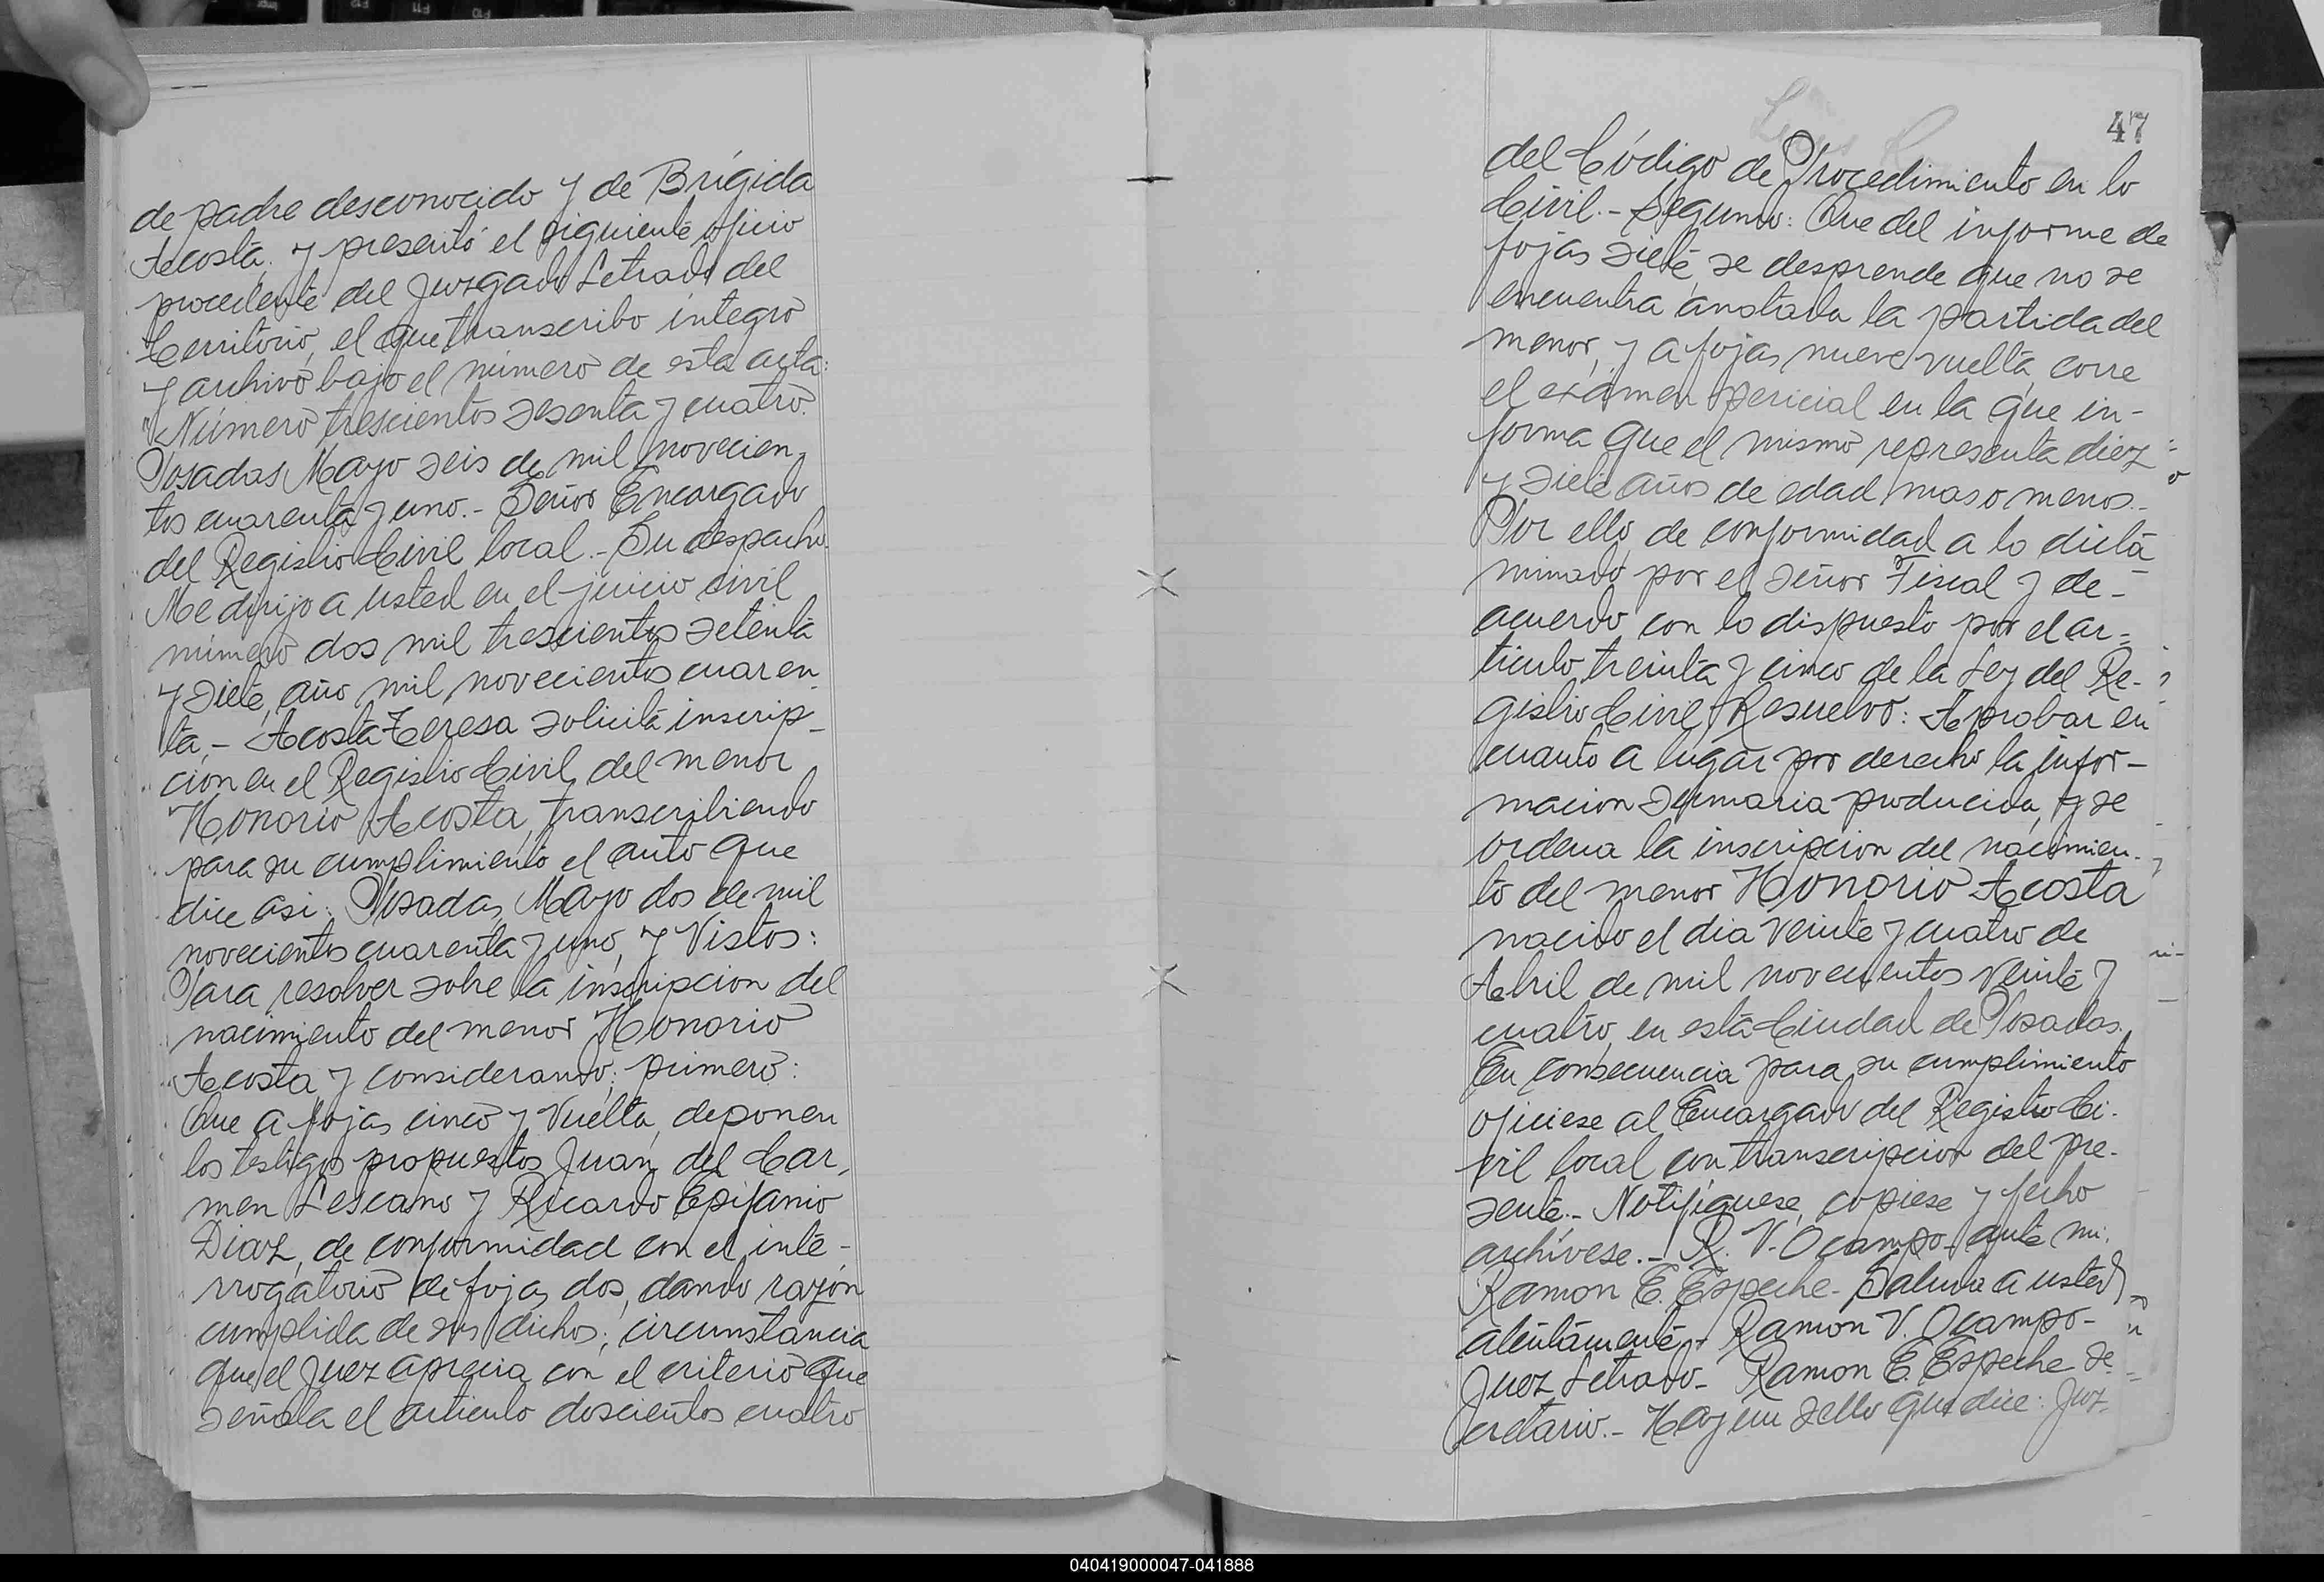 de padre desconocido y de Brígida
Acosta; y presentó el siguiente oficio
procedente del Juzgado Letrado del
Territorio, el que transcribo integro
y archivo bajo el número de esta acta:
"Número trescientos sesenta y cuatro.
Posadas Mayo seis de mil novecien-
tos cuarenta y uno.- Señor Encargado
del Registro Civil local.- Su despacho.
Me dirijo a usted en el juicio civil
número dos mil trescientos setenta
y siete, año mil novecientos cuaren
ta,- Acosta Teresa solicita inscrip-
ción en el Registro Civil, del menor
Honorio Acosta, transcribiendo
para su cumplimiento el auto que
dice asi: Posadas, Mayo dos de mil
novecientos cuarenta y uno, y Vistos:
Para resolver sobre la inscripcion del
nacimiento del menor Honorio
Acosta, y considerando; primero:
Que a fojas cinco y Vuelta, deponen
los testigos propuestos Juan del Car-
men Lescano y Ricardo Epifanio
Diaz, de conformidad con el inte-
rrogatorio de fojas dos, dando razón
cumplida de sus dichos; circunstancia
que el Juez aprecia con el criterio que
señala el artículo doscientos cuatro
47
del Código de Procedimiento en lo
Civil.- Segundo: Que del informe de
fojas siete, se desprende que no se
encuentra anotada la partida del
menor, y a fojas nueve vuelta, corre
el exámen pericial en la que in-
forma que el mismo representa diez
y siete años de edad mas o menos.-
Por ello, de conformidad a lo dicta
minado por el señor Fiscal y de-
acuerdo con lo dispuesto por el ar-
ticulo treinta y cinco de la Ley del Re-
gistro Civil, Resuelvo: Aprobar en
cuanto a lugar por derecho la infor-
macion sumaria producida, y se
ordena la inscripcion del nacimien-
to del menor Honorio Acosta
nacido el dia veinte y cuatro de
Abril de mil novecientos veinte y
cuatro, en esta Ciudad de Posadas.
En consecuencia para su cumplimiento
oficiese al Encargado del Registro Ci-
vil local con transcripcion del pre-
sente.- Notifíquese, copiese y fecho
archívese.- R. V. Ocampo- ante mi.
Ramon E. Espeche- Saluda a usted
atentamente.- Ramon V. Ocampo-
Juez Letrado- Ramon E. Espeche Se-
cretario.- Hay un sello que dice: Juz-
040419000047-041888